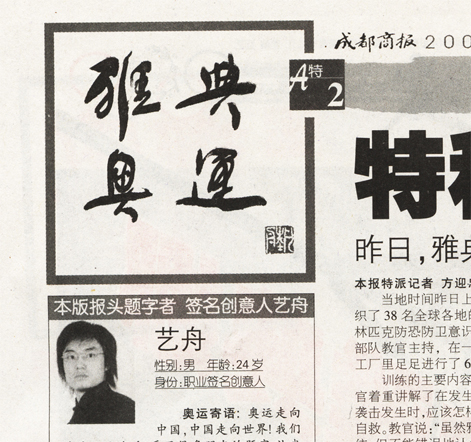 雅典
奥運
成都商报 200
A特
2
特
昨日，雅
本报特派记者 方迎
当地时间昨日上
织了38名全球各地的
林匹克防恐防卫意识
部队教官主持，在一
工厂里足足进行了6
训练的主要内容
官着重讲解了在发生
袭击发生时，应该怎样
自救。教官说：“虽然
本版报头题字者 签名创意人艺舟
艺舟
性别：男 年龄：24岁
身份：职业签名创意人
奥运寄语：奥运走向
中国，中国走向世界！我们